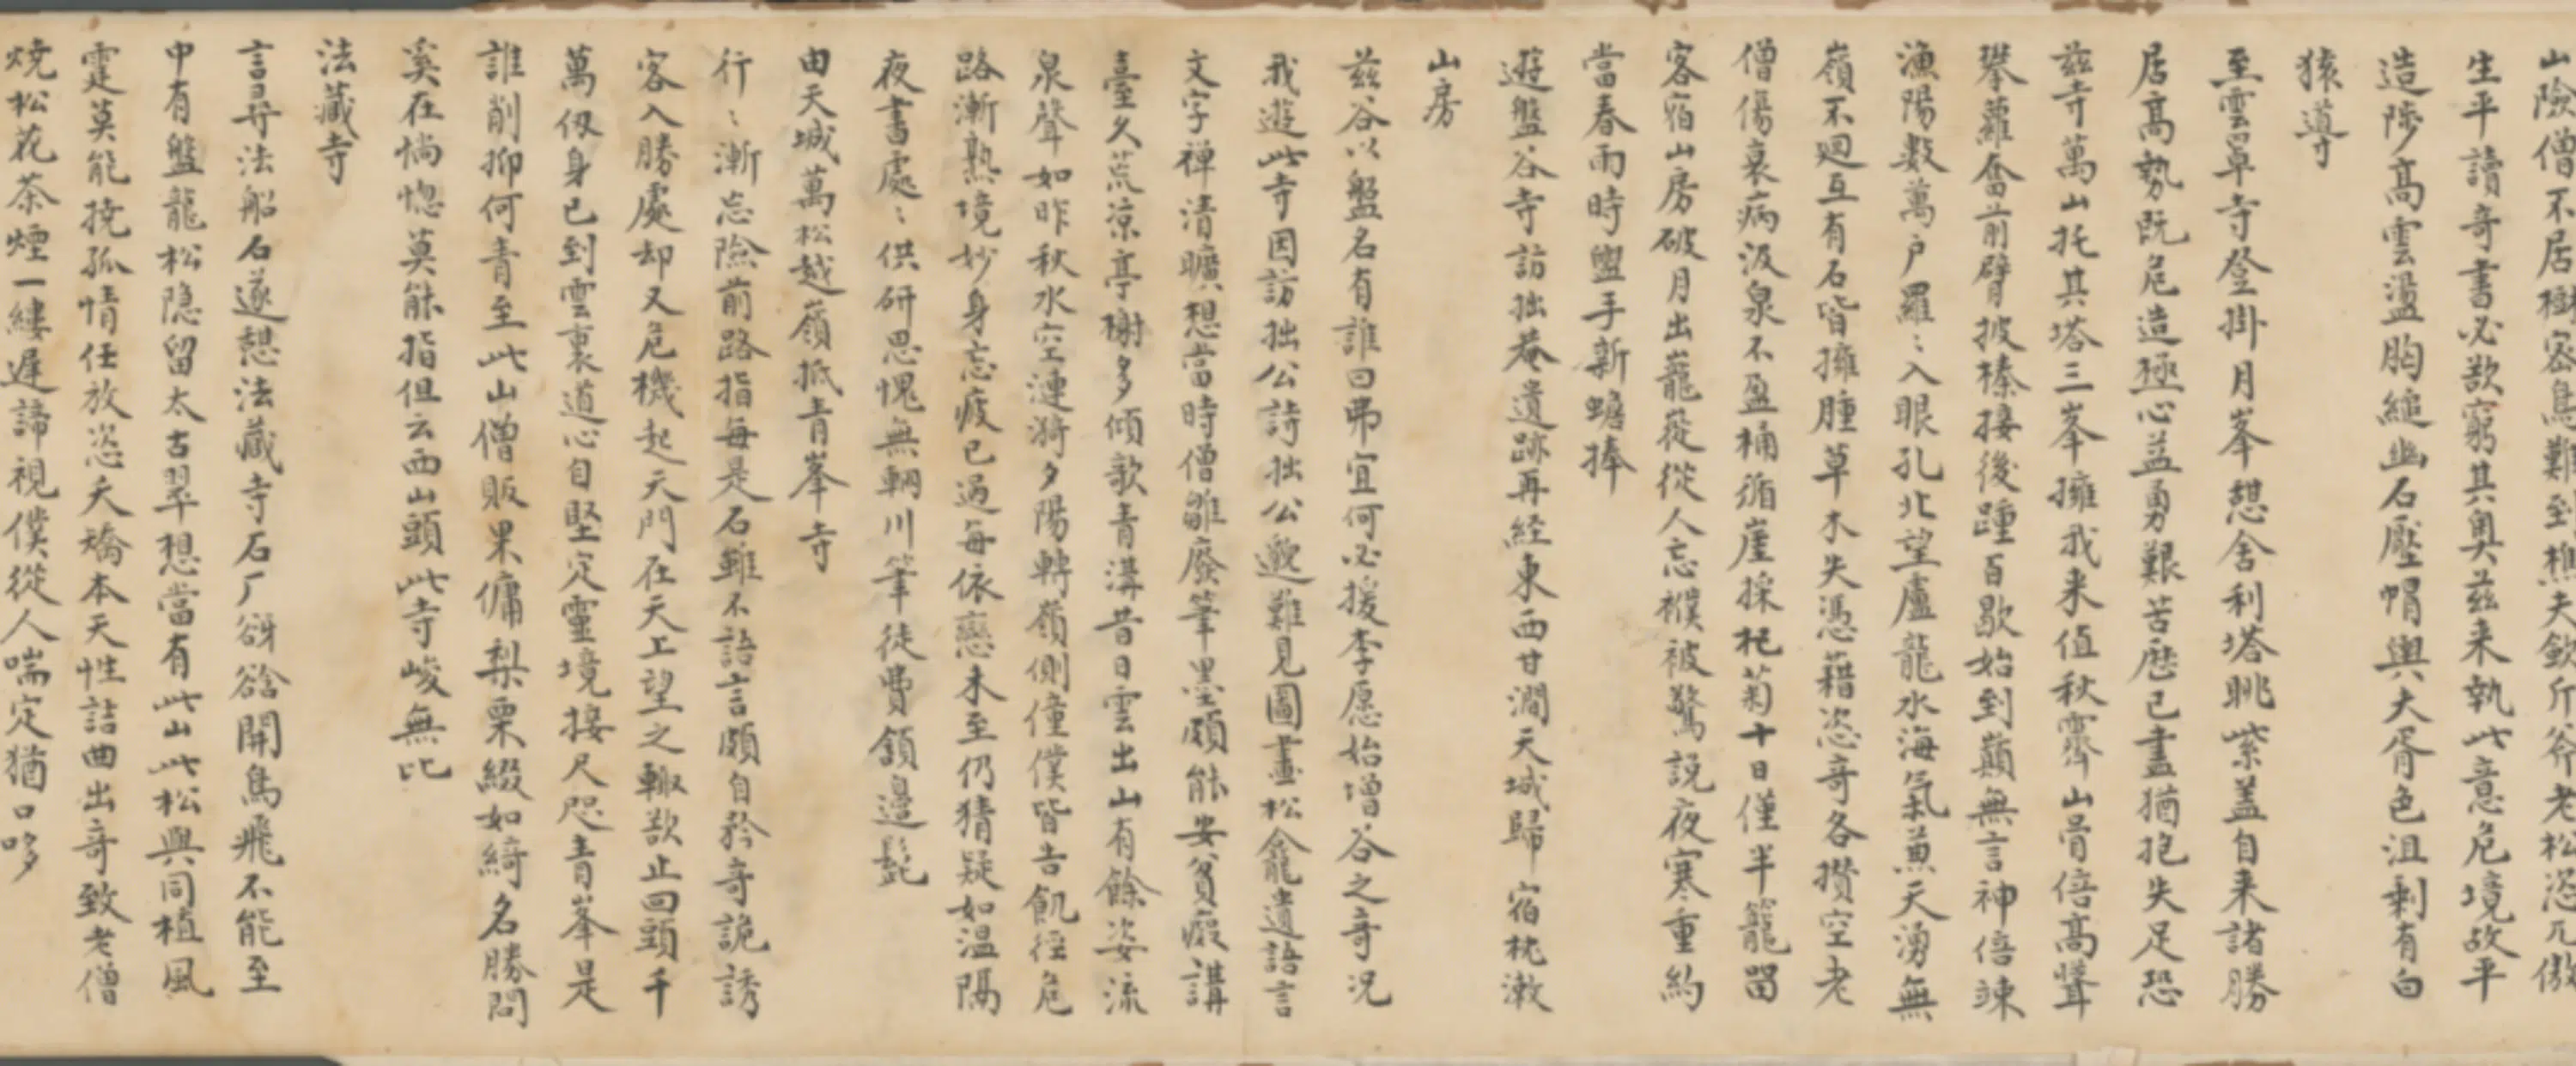 山險僧不居樹密鳥難到樵夫欽斤斧老松恣兀傲
生平讀奇書必欲窮其奧茲来執此意危境故平
造陟高雲盪胸縋幽石壓帽輿夫胥色沮剩有白
猿導
至雲罩寺登掛月峯想舍利塔眺紫蓋自来諸勝
居高勢既危造極心益勇艱苦歷已盡猶抱失足恐
茲寺萬山托其塔三峯擁我来值秋霽山骨倍高聳
攀蘿奮前臂披榛接後踵百歇始到巔無言神倍竦
漁陽數萬戶羅〻入眼孔北望盧龍水海氣兼天湧無
嶺不廻互有石皆擁腫草木失憑藉恣奇各攢空老
僧傷衰病汲泉不盈桶循崖採杞菊十日僅半籠留
客宿山房破月出巃嵸從人忘襆被驚說夜寒重約
當春雨時盥手新蟾捧
遊盤谷寺訪拙菴遺跡再経東西甘澗天城歸宿枕漱
山房
茲谷以盤名有誰曰弗宜何必援李愿始增谷之奇况
我遊此寺因訪拙公詩拙公邈難見圖畫松龕遺語言
文字禅清曠想當時僧雛廢筆墨頗能安貧癡講
臺久荒凉亭榭多傾欹青溝昔日雲出山有餘姿流
泉聲如昨秋水空漣漪夕陽轉嶺側僮僕皆告飢徑危
路漸熟境妙身忘疲已過每依戀未至仍猜疑如温隔
夜書處〻供研思愧無輞川筆徒費頷邊髭
由天城萬松越嶺抵青峯寺
行〻漸忘險前路指每是石雖不語言頗自矜奇詭誘
客入勝處却又危機起天門在天上望之輒欲止回頭千
萬仭身已到雲裏道心自堅定靈境接尺咫青峯是
誰削抑何青至此山僧販果傭梨栗綴如綺名勝問
奚在惝惚莫能指但云西山頭此寺峻無比
法藏寺
言尋法船石遂想法藏寺石厂谺谽開鳥飛不能至
中有盤龍松隐留太古翠想當有此山此松與同植風
霆莫能撓孤情任放恣夭矯本天性詰曲出奇致老僧
燒松花茶煙一縷遲諦視僕從人喘定猶口哆